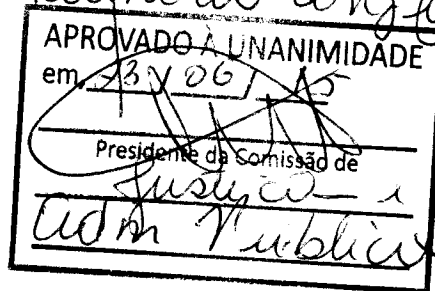 APROVADO À UNANIMIDADE
em 06/ 15
Presidente da Comissão de
Justiça
adm Publica